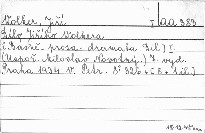 Wolker, Jiří
I aa 383
Dílo Jiřího Wolkera
(: Básně - prosa - dramata. Díl:) I.
(Uspoř. Miloslav Novotný.) 7. vyd.
Praha 1934. V. Petr. S. 326